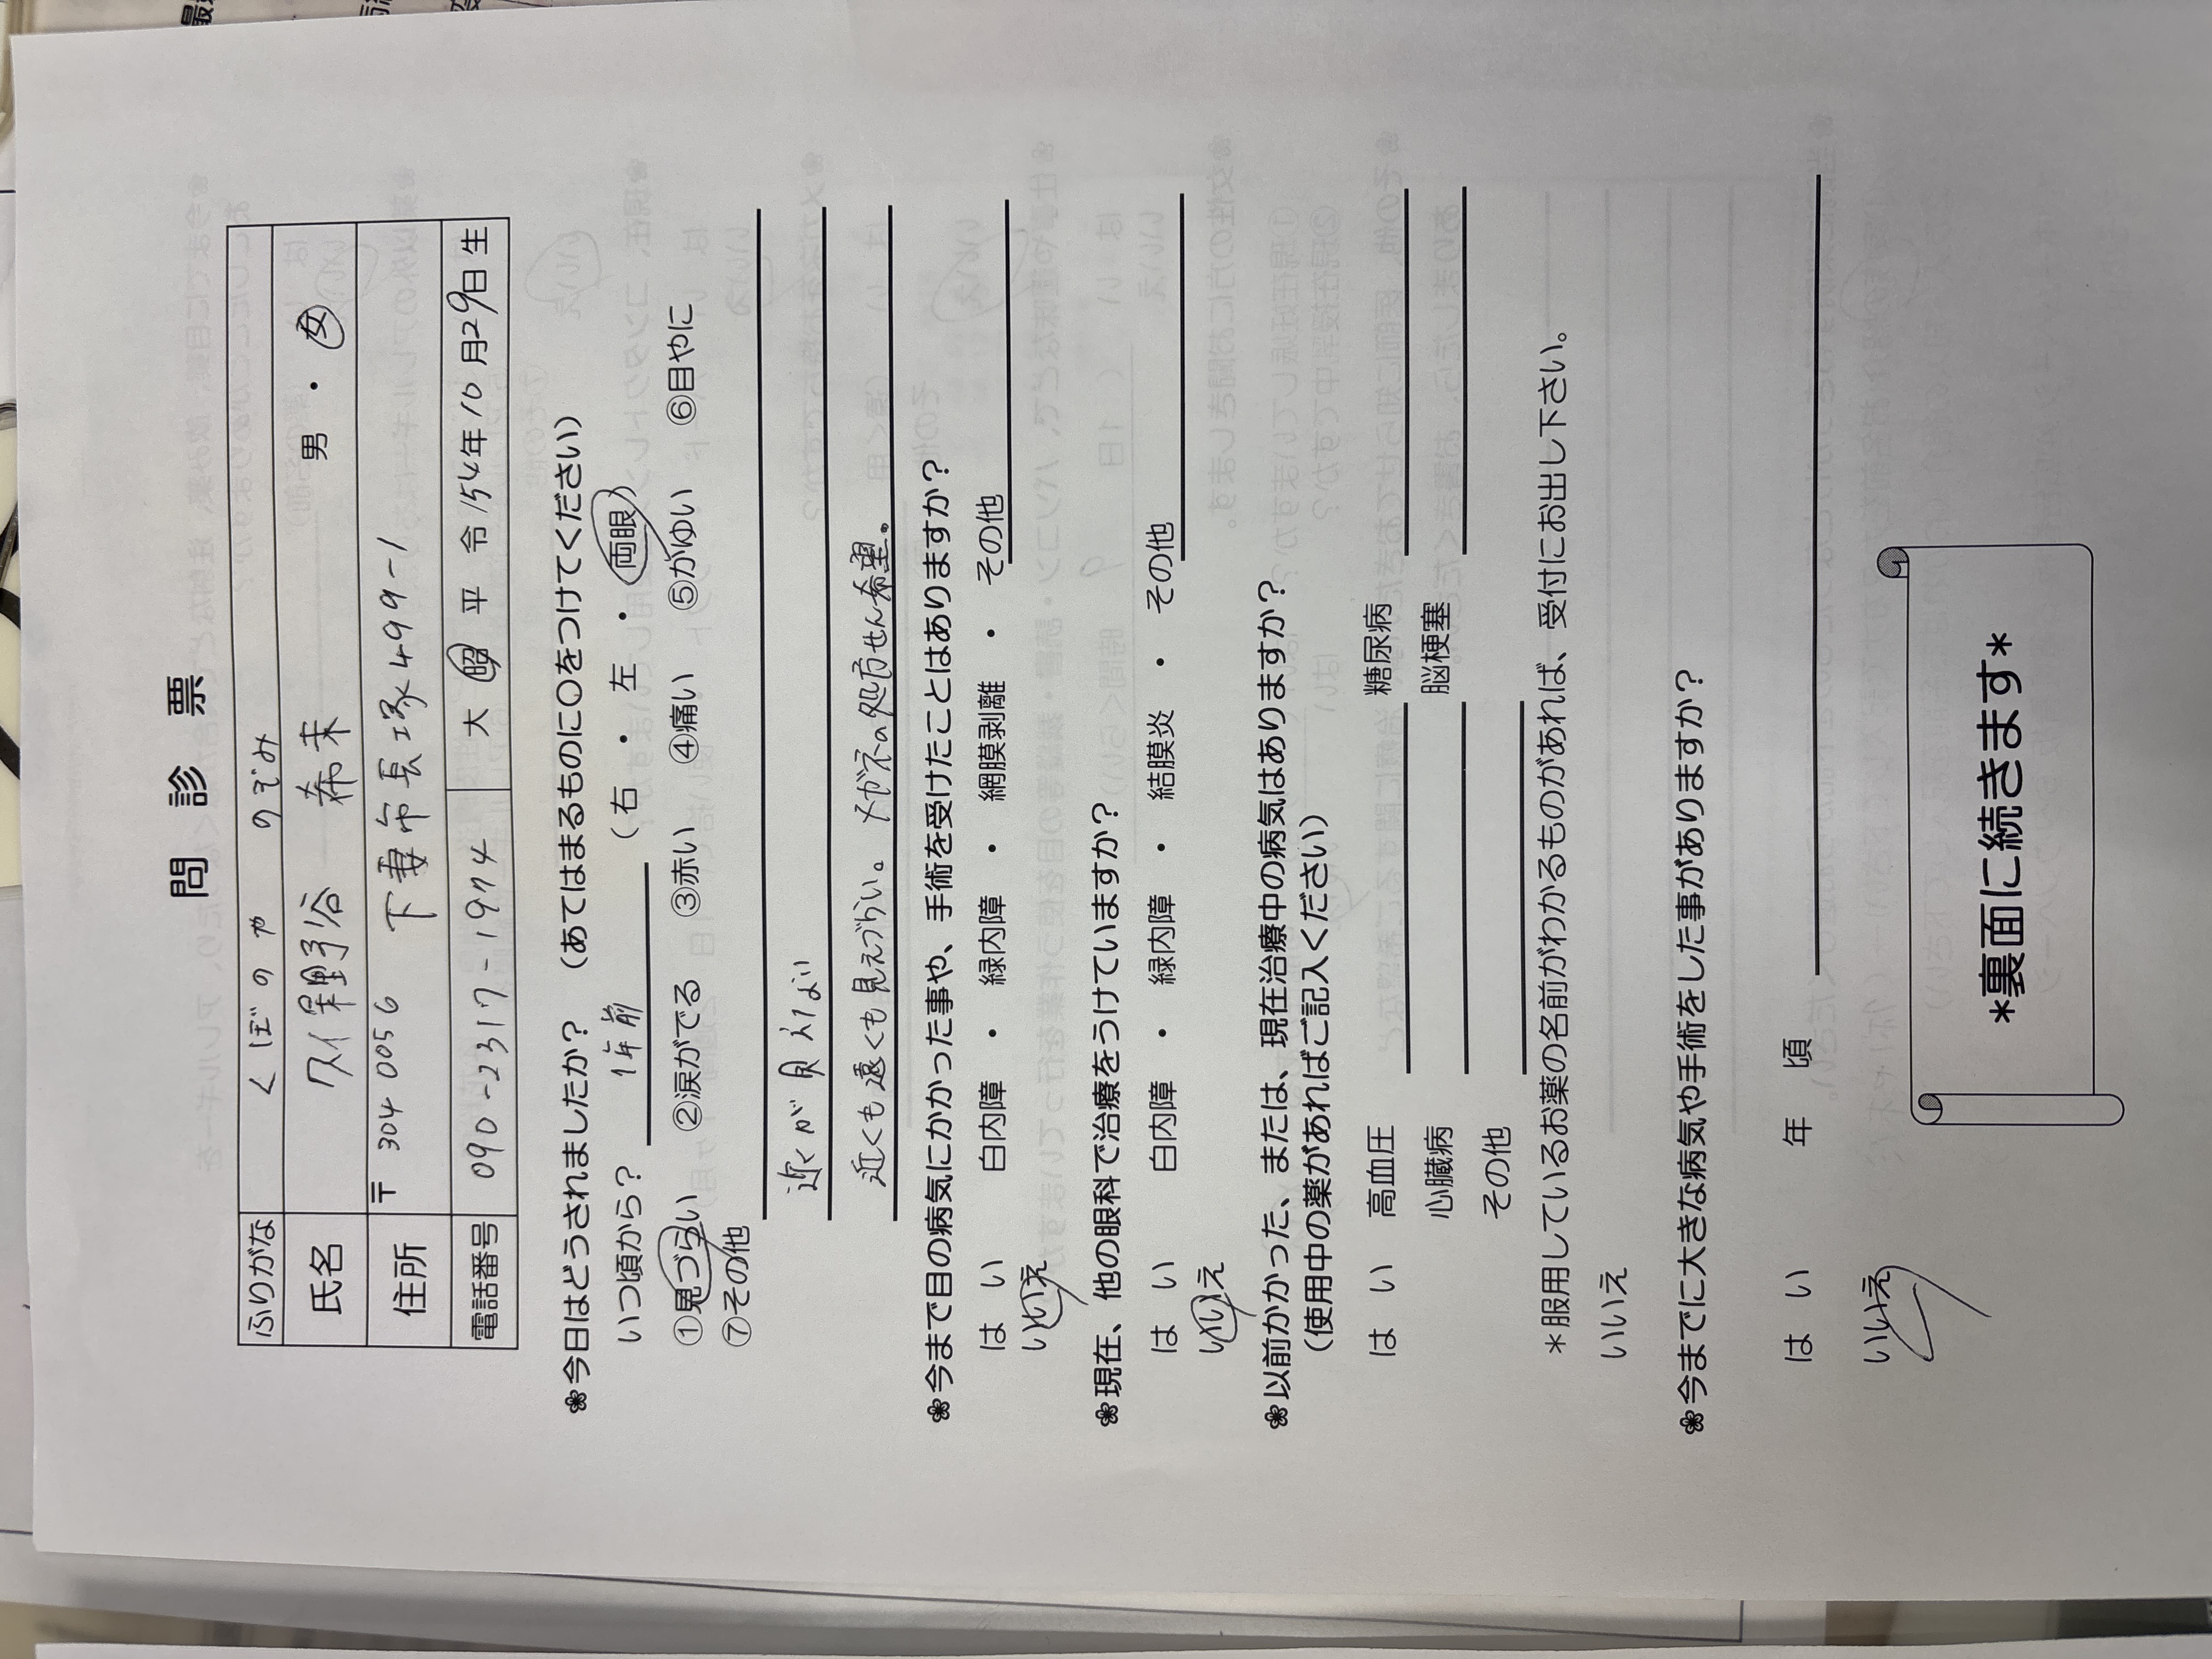 問診票
ふりがな くぼのや のぞみ
氏名 久保野谷 希未 男・女
住所 〒 304 0056 下妻市長塚499-1
電話番号 090-2317-1974 大 昭 平 令 54年10月29日生
❀今日はどうされましたか? (あてはまるものに○をつけてください)
いつ頃から? 1年前 (右・左・両眼)
①見づらい ②涙がでる ③赤い ④痛い ⑤かゆい ⑥目やに
⑦その他
近くが見えない
近くも遠くも見えづらい。 メガネの処方せん希望。
❀今まで目の病気にかかった事や、手術を受けたことはありますか?
はい 白内障・緑内障・網膜剥離・その他
いいえ
❀現在、他の眼科で治療をうけていますか?
はい 白内障・緑内障・結膜炎・その他
いいえ
❀以前かかった、または、現在治療中の病気はありますか?
(使用中の薬があればご記入ください)
はい 高血圧 糖尿病
心臓病 脳梗塞
その他
*服用しているお薬の名前がわかるものがあれば、受付にお出し下さい。
いいえ
❀今までに大きな病気や手術をした事がありますか?
はい 年 頃
いいえ
*裏面に続きます*